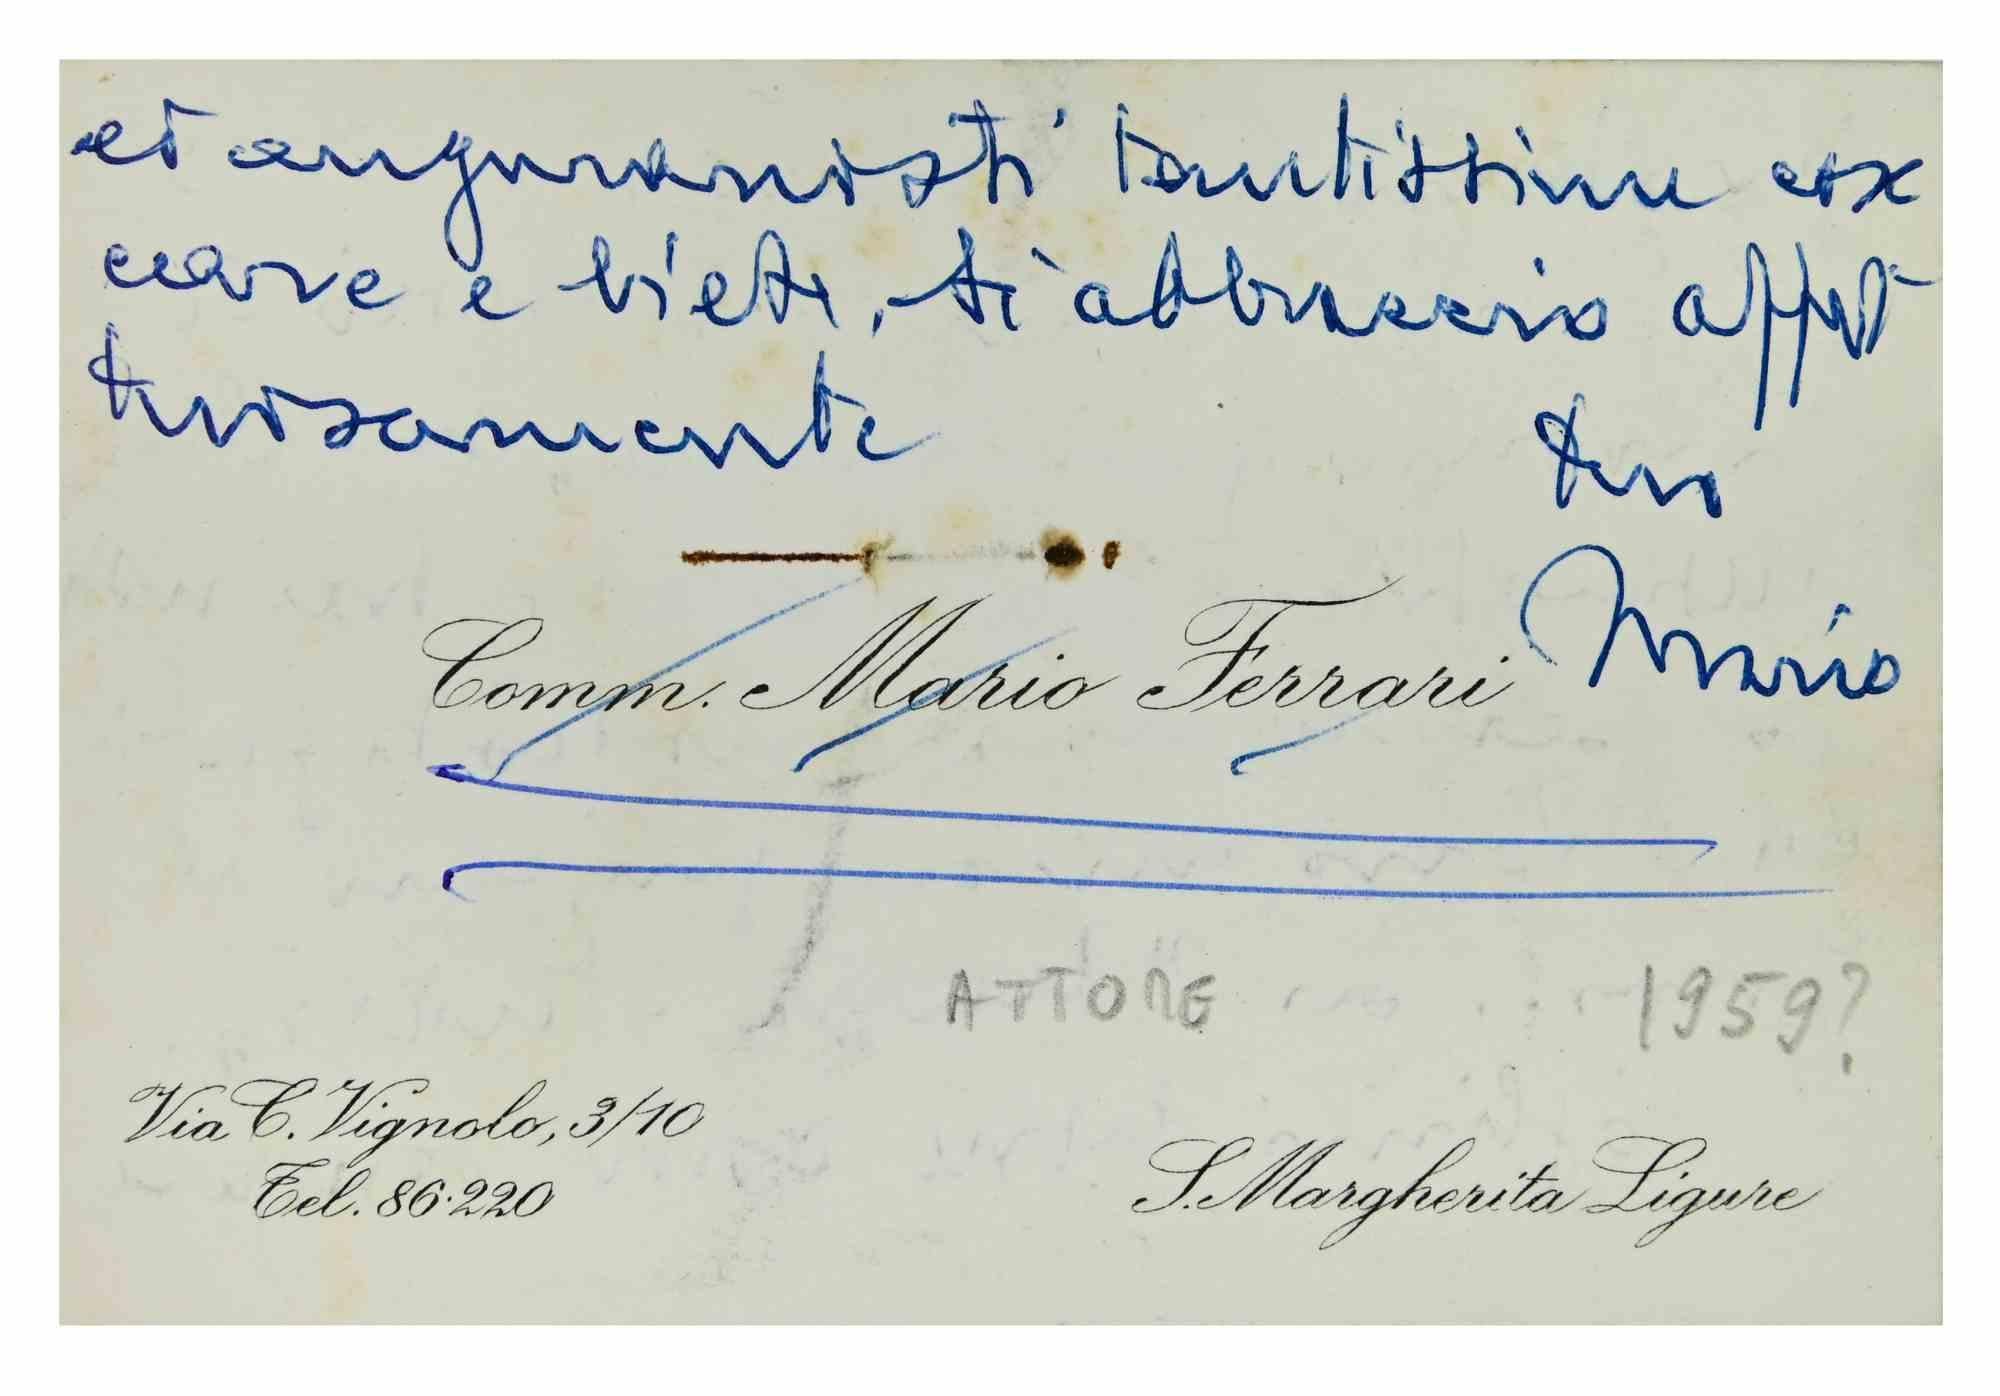 ed augurandoti tantissime cose
care e liete, ti abbraccio affet
tuosamente
tuo
Mario
Comm. Mario Ferrari
ATTORE
1959?
Via C. Vignolo, 3/10
Tel. 86·220
S. Margherita Ligure